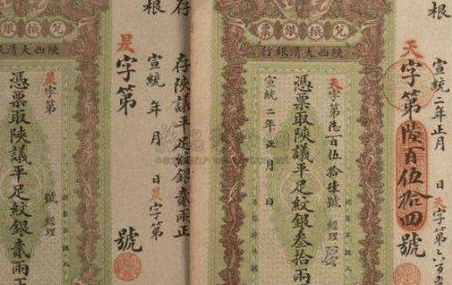 根
宣統二年正月 日天字第
天字第陸百伍拾四號
兌換銀票
陝西大清銀行
天字第陸百伍拾肆號 經理
憑票取陝議平足紋銀叁拾兩
宣統二年正月 日
存陝議平足紋銀貳兩正
宣統 年 月 日是字第
是字第 號
存根
兌換銀票
陝西大清銀行
是字第 號 經理
憑票取陝議平足紋銀貳兩正